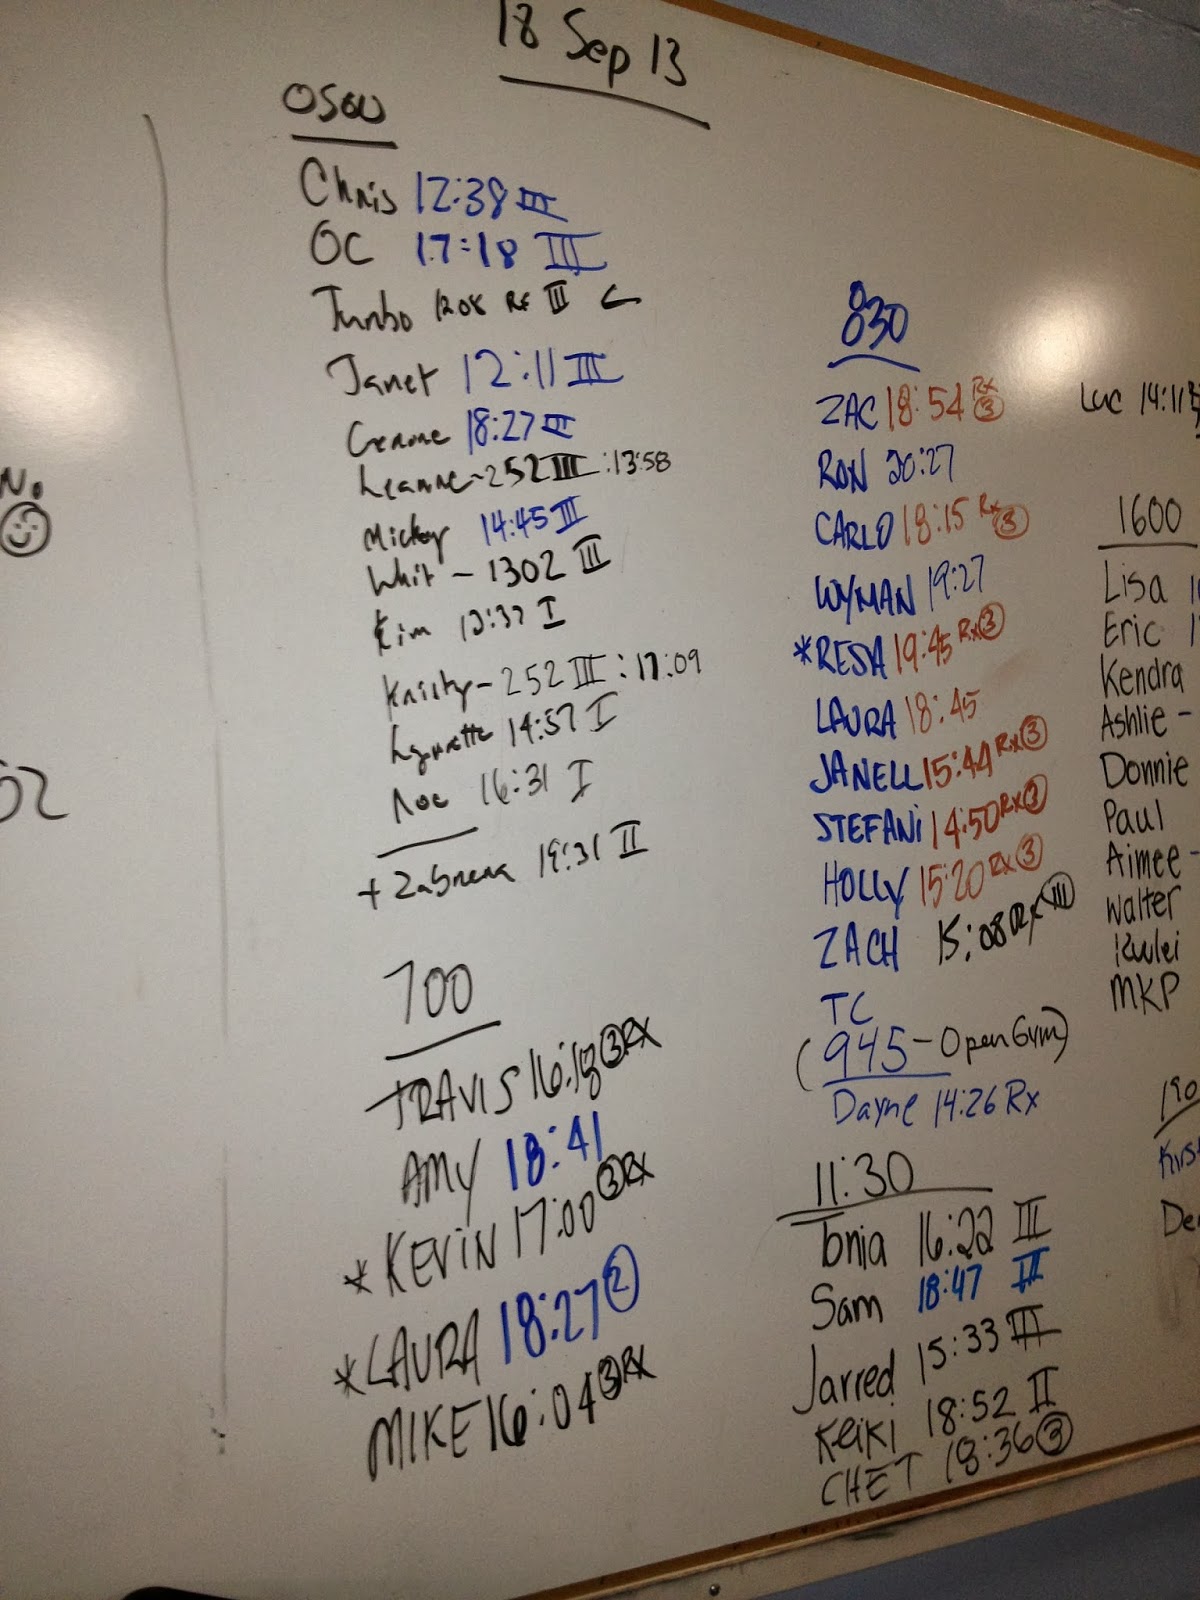 18 Sep 13
0500
Chris 12:38 III
OC 17:18 III
Jumbo 1208 Rx III <
Janet 12:11 III
18:27 II
Leanne - 252 III : 13:58
Mickey 14:45 III
Whit - 1302 III
Kim I
Kristy - 252 III : 17:09
Lynnette 14:57 I
Noe 16:31 I
+ Zabrena 19:31 II
700
TRAVIS 16:18 ③ RX
AMY 18:41
* KEVIN 17:00 ③ RX
* LAURA 18:27 ②
MIKE 16:04 ③ RX
830
ZAC 18:54 RX ③
RON 20:27
CARLO 18:15 Rx ③
WYMAN 19:27
* RESA 19:45 Rx ③
LAURA 18:45
JANELL 15:44 Rx ③
STEFANi 14:50 RX ③
HOLLY 15:20 Rx ③
ZACH 15:08 RX III
TC
(945 - Open Gym)
Dayne 14:26 Rx
11:30
Tonia 16:22 III
Sam 18:47 II
Jarred 15:33 III
Keiki 18:52 II
CHET 18:36 ③
Luc 14:11
1600
Lisa
Eric
Kendra
Ashlie -
Donnie
Paul
Aimee -
Walter
MKP